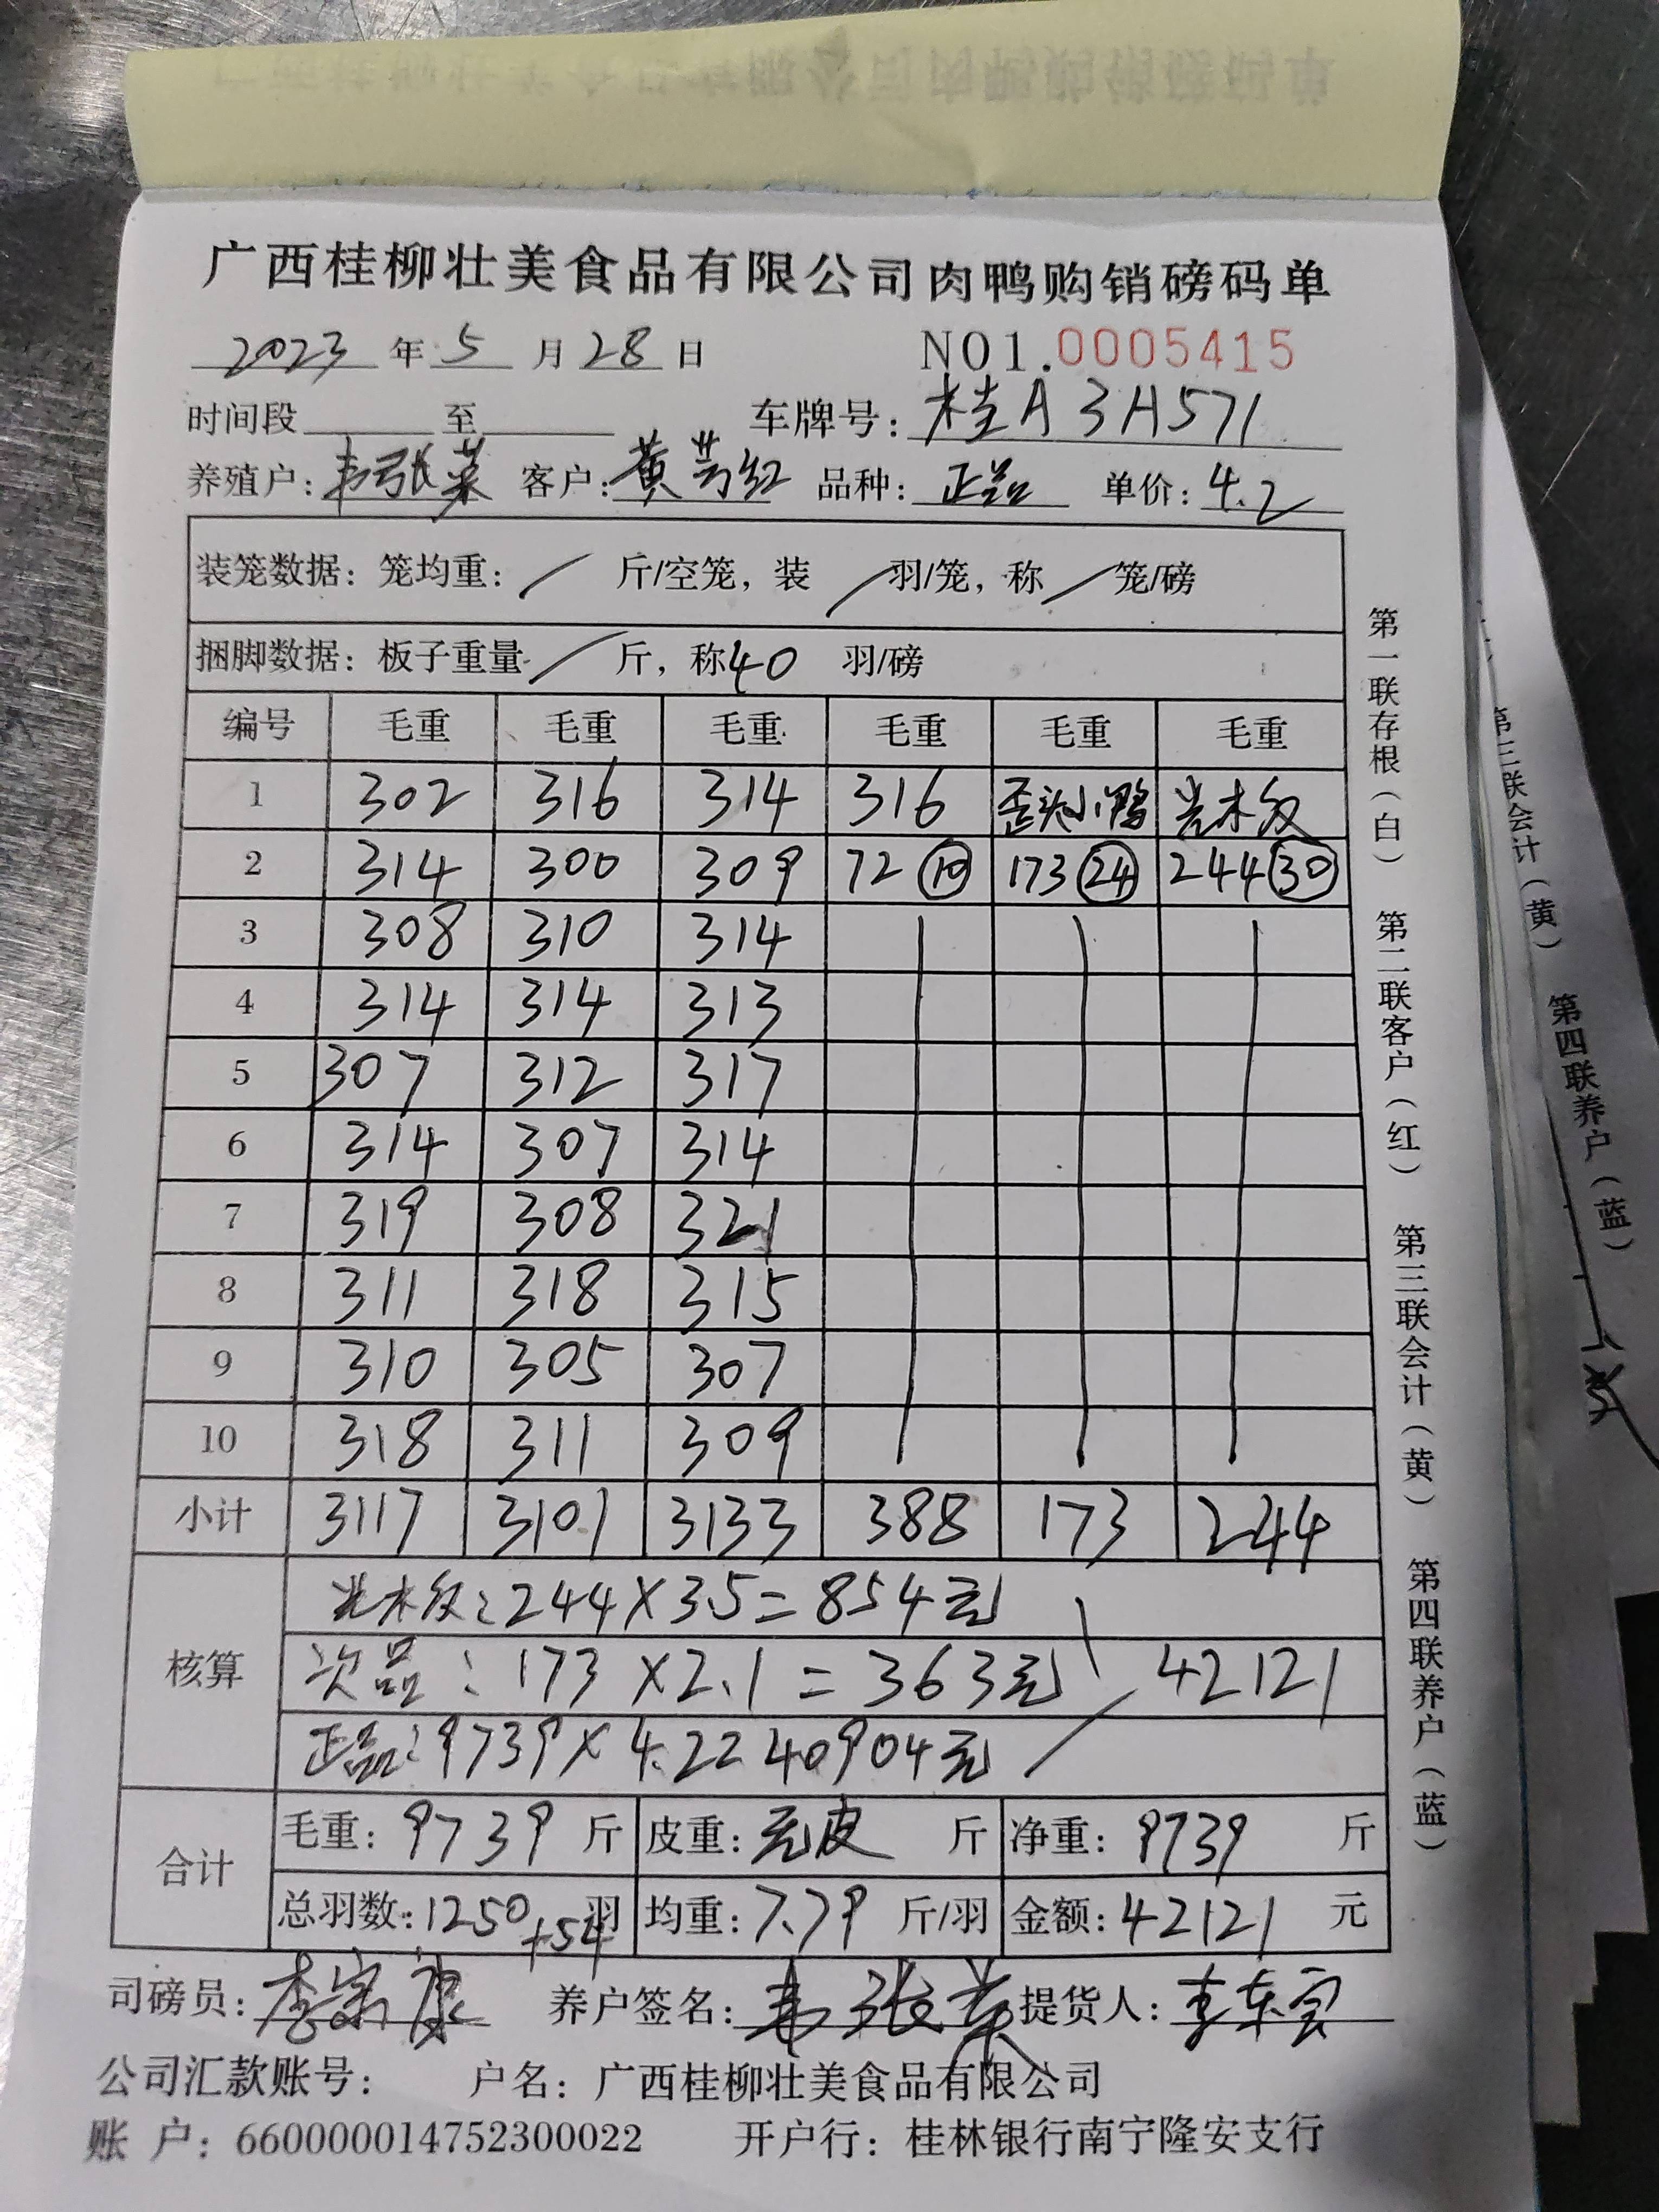 广西桂柳壮美食品有限公司肉鸭购销磅码单
2023 年 5 月 28 日 NO1.0005415
时间段 至 车牌号: 桂A3H571
养殖户: 韦张荣 客户: 黄芳红 品种: 正品 单价: 4.2
装笼数据: 笼均重: / 斤/空笼, 装 / 羽/笼, 称 / 笼/磅
捆脚数据: 板子重量 / 斤, 称40 羽/磅
编号 毛重 毛重 毛重 毛重 毛重 毛重
1 302 316 314 316 歪头小鸭 光木仅
2 314 300 309 72 ⑩ 173 ㉔ 244 ㉚
3 308 310 314
4 314 314 313
5 307 312 317
6 314 307 314
7 319 308 321
8 311 318 315
9 310 305 307
10 318 311 309
小计 3117 3101 3133 388 173 244
核算
244×3.5=854元
次品: 173×2.1=363元 42121
正品: 9739×4.2=40904元
合计
毛重: 9739 斤 皮重: 无皮 斤 净重: 9739 斤
总羽数: 1250+54 羽 均重: 7.79 斤/羽 金额: 42121 元
司磅员: 李宗康 养户签名: 韦张荣 提货人:
公司汇款账号: 户名: 广西桂柳壮美食品有限公司
账 户: 660000014752300022 开户行: 桂林银行南宁隆安支行
第一联存根(白) 第二联客户(红) 第三联会计(黄) 第四联养户(蓝)
第三联会计(黄) 第四联养户(蓝)